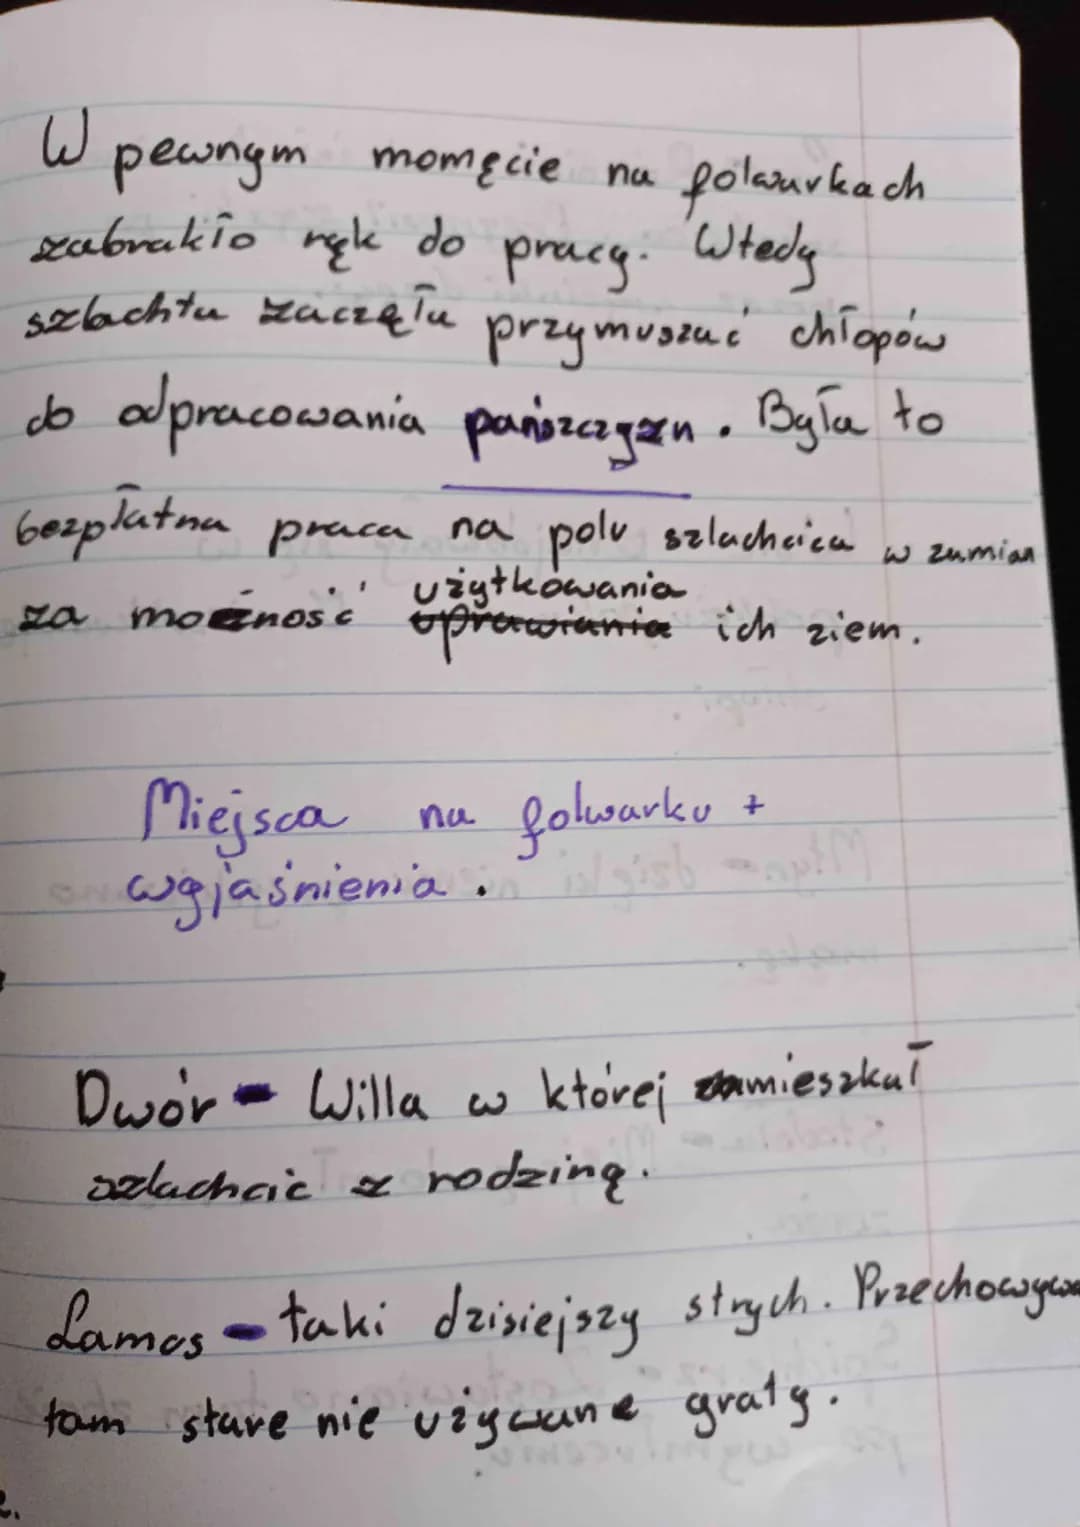 W pewnym momęcie na folwarkach
zabrakło rąk do pracy. Wtedy
szlachta zaczęła przymuszać chłopów
do odpracowania pańszczyzn. Była to
bezpłatna praca na polu szlachcica w zamian
za możność użytkowania uprawiania ich ziem.
Miejsca na folwarku +
wyjaśnienia.
Dwór - Willa w której zamieszkał
szlachcic z rodziną.
Lamos - taki dzisiejszy strych. Przechowywa
tam stare nie używane graty.